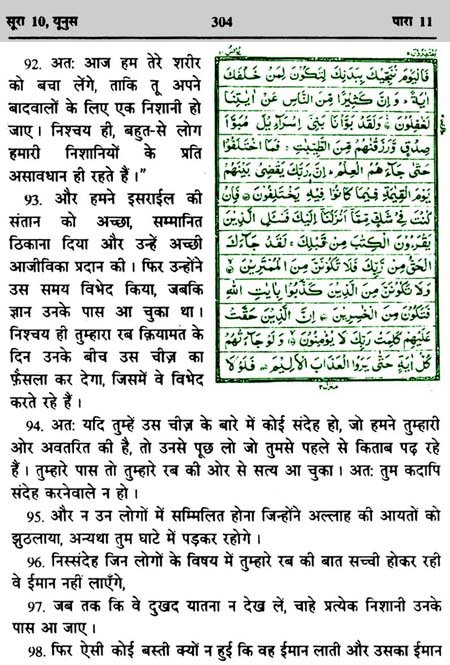 सूरा 10, यूनुस 304 पारा 11
92. अतः आज हम तेरे शरीर
को बचा लेंगे, ताकि तू अपने
बादवालों के लिए एक निशानी हो
जाए। निश्चय ही, बहुत-से लोग
हमारी निशानियों के प्रति
असावधान ही रहते हैं।”
93. और हमने इसराईल की
संतान को अच्छा, सम्मानित
ठिकाना दिया और उन्हें अच्छी
आजीविका प्रदान की। फिर उन्होंने
उस समय विभेद किया, जबकि
ज्ञान उनके पास आ चुका था।
निश्चय ही तुम्हारा रब क़ियामत के
दिन उनके बीच उस चीज़ का
फ़ैसला कर देगा, जिसमें वे विभेद
करते रहे हैं।
فَالْيَوْمَ نُنَجِّيكَ بِبَدَنِكَ لِتَكُونَ لِمَنْ خَلْفَكَ
اٰيَةً ۚ وَاِنَّ كَثِيْرًا مِّنَ النَّاسِ عَنْ اٰيٰتِنَا
لَغٰفِلُوْنَ ۞ وَلَقَدْ بَوَّاْنَا بَنِيْٓ اِسْرَآءِيْلَ مُبَوَّاَ
صِدْقٍ وَّرَزَقْنٰهُمْ مِّنَ الطَّيِّبٰتِ ۚ فَمَا اخْتَلَفُوْا
حَتّٰى جَآءَهُمُ الْعِلْمُ ؕ اِنَّ رَبَّكَ يَقْضِيْ بَيْنَهُمْ
يَوْمَ الْقِيٰمَةِ فِيْمَا كَانُوْا فِيْهِ يَخْتَلِفُوْنَ ۞ فَاِنْ
كُنْتَ فِيْ شَكٍّ مِّمَّآ اَنْزَلْنَآ اِلَيْكَ فَسْـَٔلِ الَّذِيْنَ
يَقْرَءُوْنَ الْكِتٰبَ مِنْ قَبْلِكَ ۚ لَقَدْ جَآءَكَ
الْحَقُّ مِنْ رَّبِّكَ فَلَا تَكُوْنَنَّ مِنَ الْمُمْتَرِيْنَ ۞
وَلَا تَكُوْنَنَّ مِنَ الَّذِيْنَ كَذَّبُوْا بِاٰيٰتِ اللّٰهِ
فَتَكُوْنَ مِنَ الْخٰسِرِيْنَ ۞ اِنَّ الَّذِيْنَ حَقَّتْ
عَلَيْهِمْ كَلِمَتُ رَبِّكَ لَا يُؤْمِنُوْنَ ۞ وَلَوْ جَآءَتْهُمْ
كُلُّ اٰيَةٍ حَتّٰى يَرَوُا الْعَذَابَ الْاَلِيْمَ ۞ فَلَوْلَا
94. अतः यदि तुम्हें उस चीज़ के बारे में कोई संदेह हो, जो हमने तुम्हारी
ओर अवतरित की है, तो उनसे पूछ लो जो तुमसे पहले से किताब पढ़ रहे
हैं। तुम्हारे पास तो तुम्हारे रब की ओर से सत्य आ चुका। अतः तुम कदापि
संदेह करनेवाले न हो।
95. और न उन लोगों में सम्मिलित होना जिन्होंने अल्लाह की आयतों को
झुठलाया, अन्यथा तुम घाटे में पड़कर रहोगे।
96. निस्संदेह जिन लोगों के विषय में तुम्हारे रब की बात सच्ची होकर रही
वे ईमान नहीं लाएँगे,
97. जब तक कि वे दुखद यातना न देख लें, चाहे प्रत्येक निशानी उनके
पास आ जाए।
98. फिर ऐसी कोई बस्ती क्यों न हुई कि वह ईमान लाती और उसका ईमान